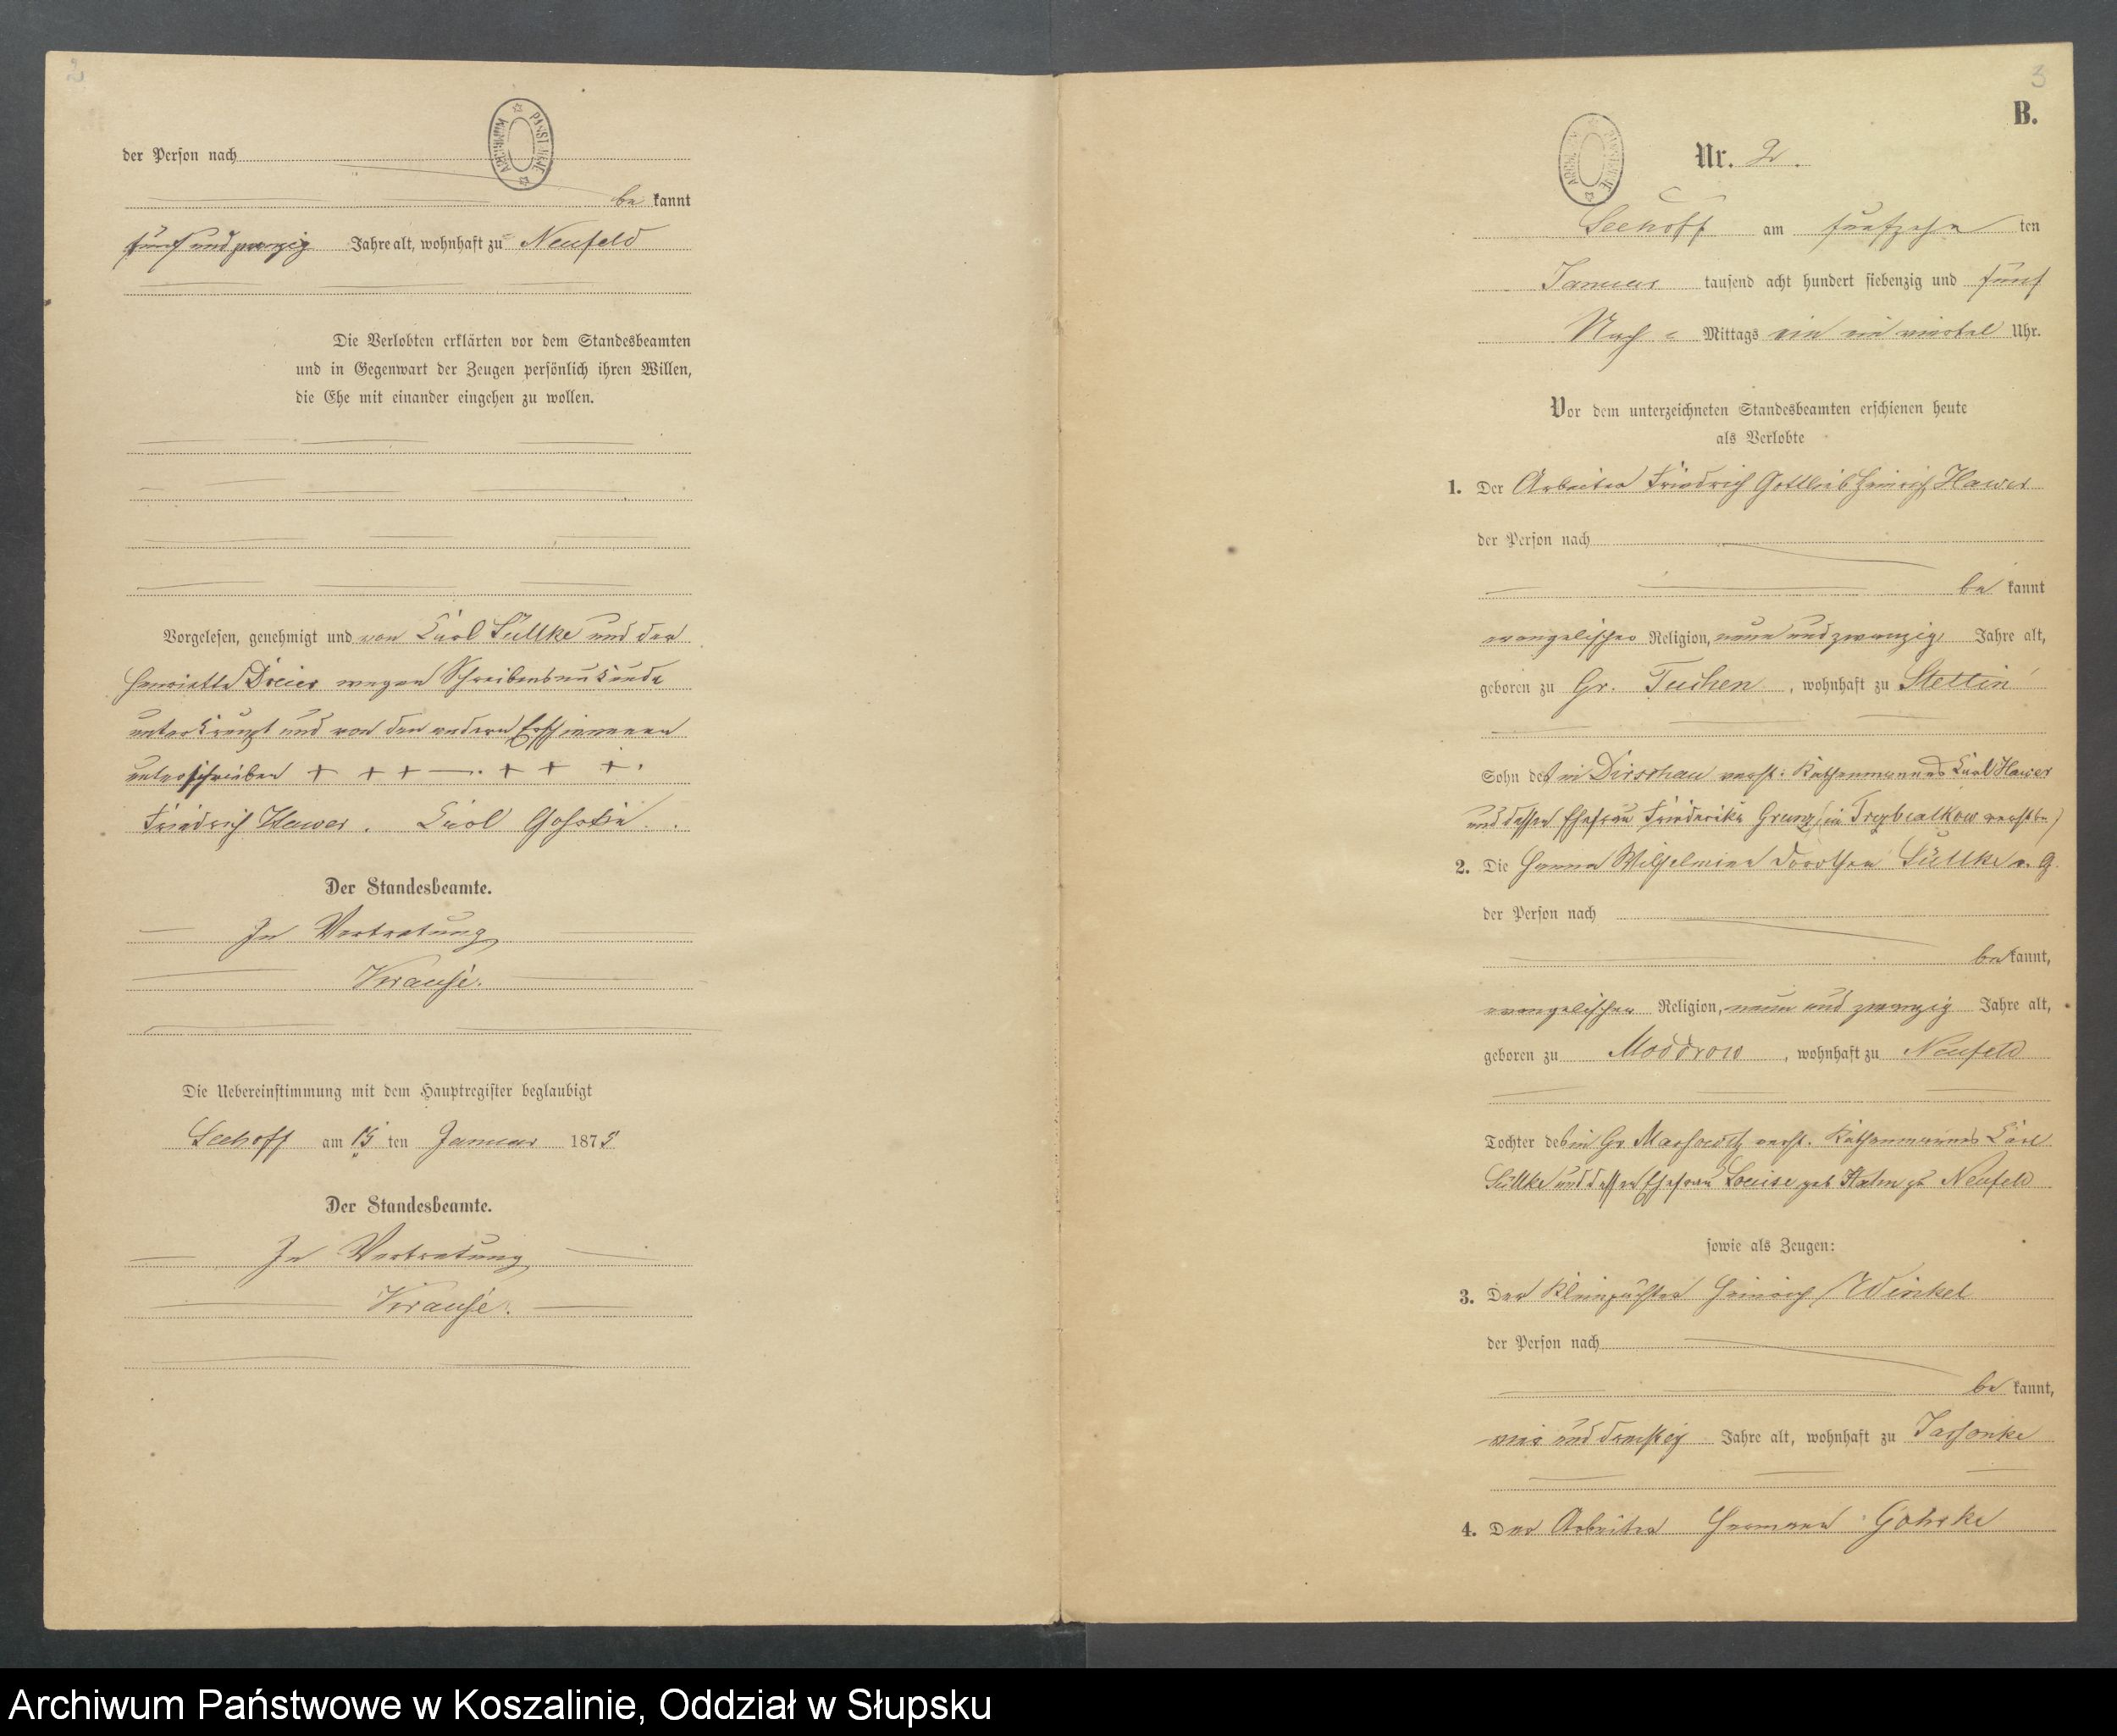 2
der Person nach
be kannt
fünf und zwanzig Jahre alt, wohnhaft zu Neufeld
Die Verlobten erklärten vor dem Standesbeamten
und in Gegenwart der Zeugen persönlich ihren Willen,
die Ehe mit einander eingehen zu wollen.
Vorgelesen, genehmigt und von Carl Süllke und der
Henriette Dreier wegen Schreibensunkunde
unterkreuzt und von den andern Erschienenen
unterschrieben + + + — . + + + .
Friedrich Hawer. Carl
Der Standesbeamte.
In Vertretung
Krause.
Die Uebereinstimmung mit dem Hauptregister beglaubigt
Seehoff am 15 ten Januar 187
Der Standesbeamte.
In Vertretung
Krause.
3
B.
Nr. 2.
Seehoff am funfzehn ten
Januar tausend acht hundert siebenzig und fünf
Nach = Mittags ein ein viertel Uhr.
Vor dem unterzeichneten Standesbeamten erschienen heute
als Verlobte
1. Der Arbeiter Friedrich Gottlieb Heinrich Hawer
der Person nach
be kannt
evangelischer Religion, neun und zwanzig Jahre alt,
geboren zu Gr. Tuchen, wohnhaft zu Stettin
Sohn des in Dirschau verst. Kathenmannes Carl Hawer
und dessen Ehefrau Friederike Grunz, in
2. Die Hanna Wilhelmine Dorothea Süllke
der Person nach
be kannt,
evangelischer Religion, neun und zwanzig Jahre alt,
geboren zu Moddrow, wohnhaft zu Neufeld
Tochter des in Gr. verst. Kathenmannes Carl
Süllke und dessen Ehefrau Louise geb Hahn zu Neufeld
sowie als Zeugen:
3. Der Kleinpächter Heinrich Winkel
der Person nach
be kannt,
vier und dreißig Jahre alt, wohnhaft zu Jassonke
4. Der Arbeiter Hermann Gohrke
Archiwum Państwowe w Koszalinie, Oddział w Słupsku